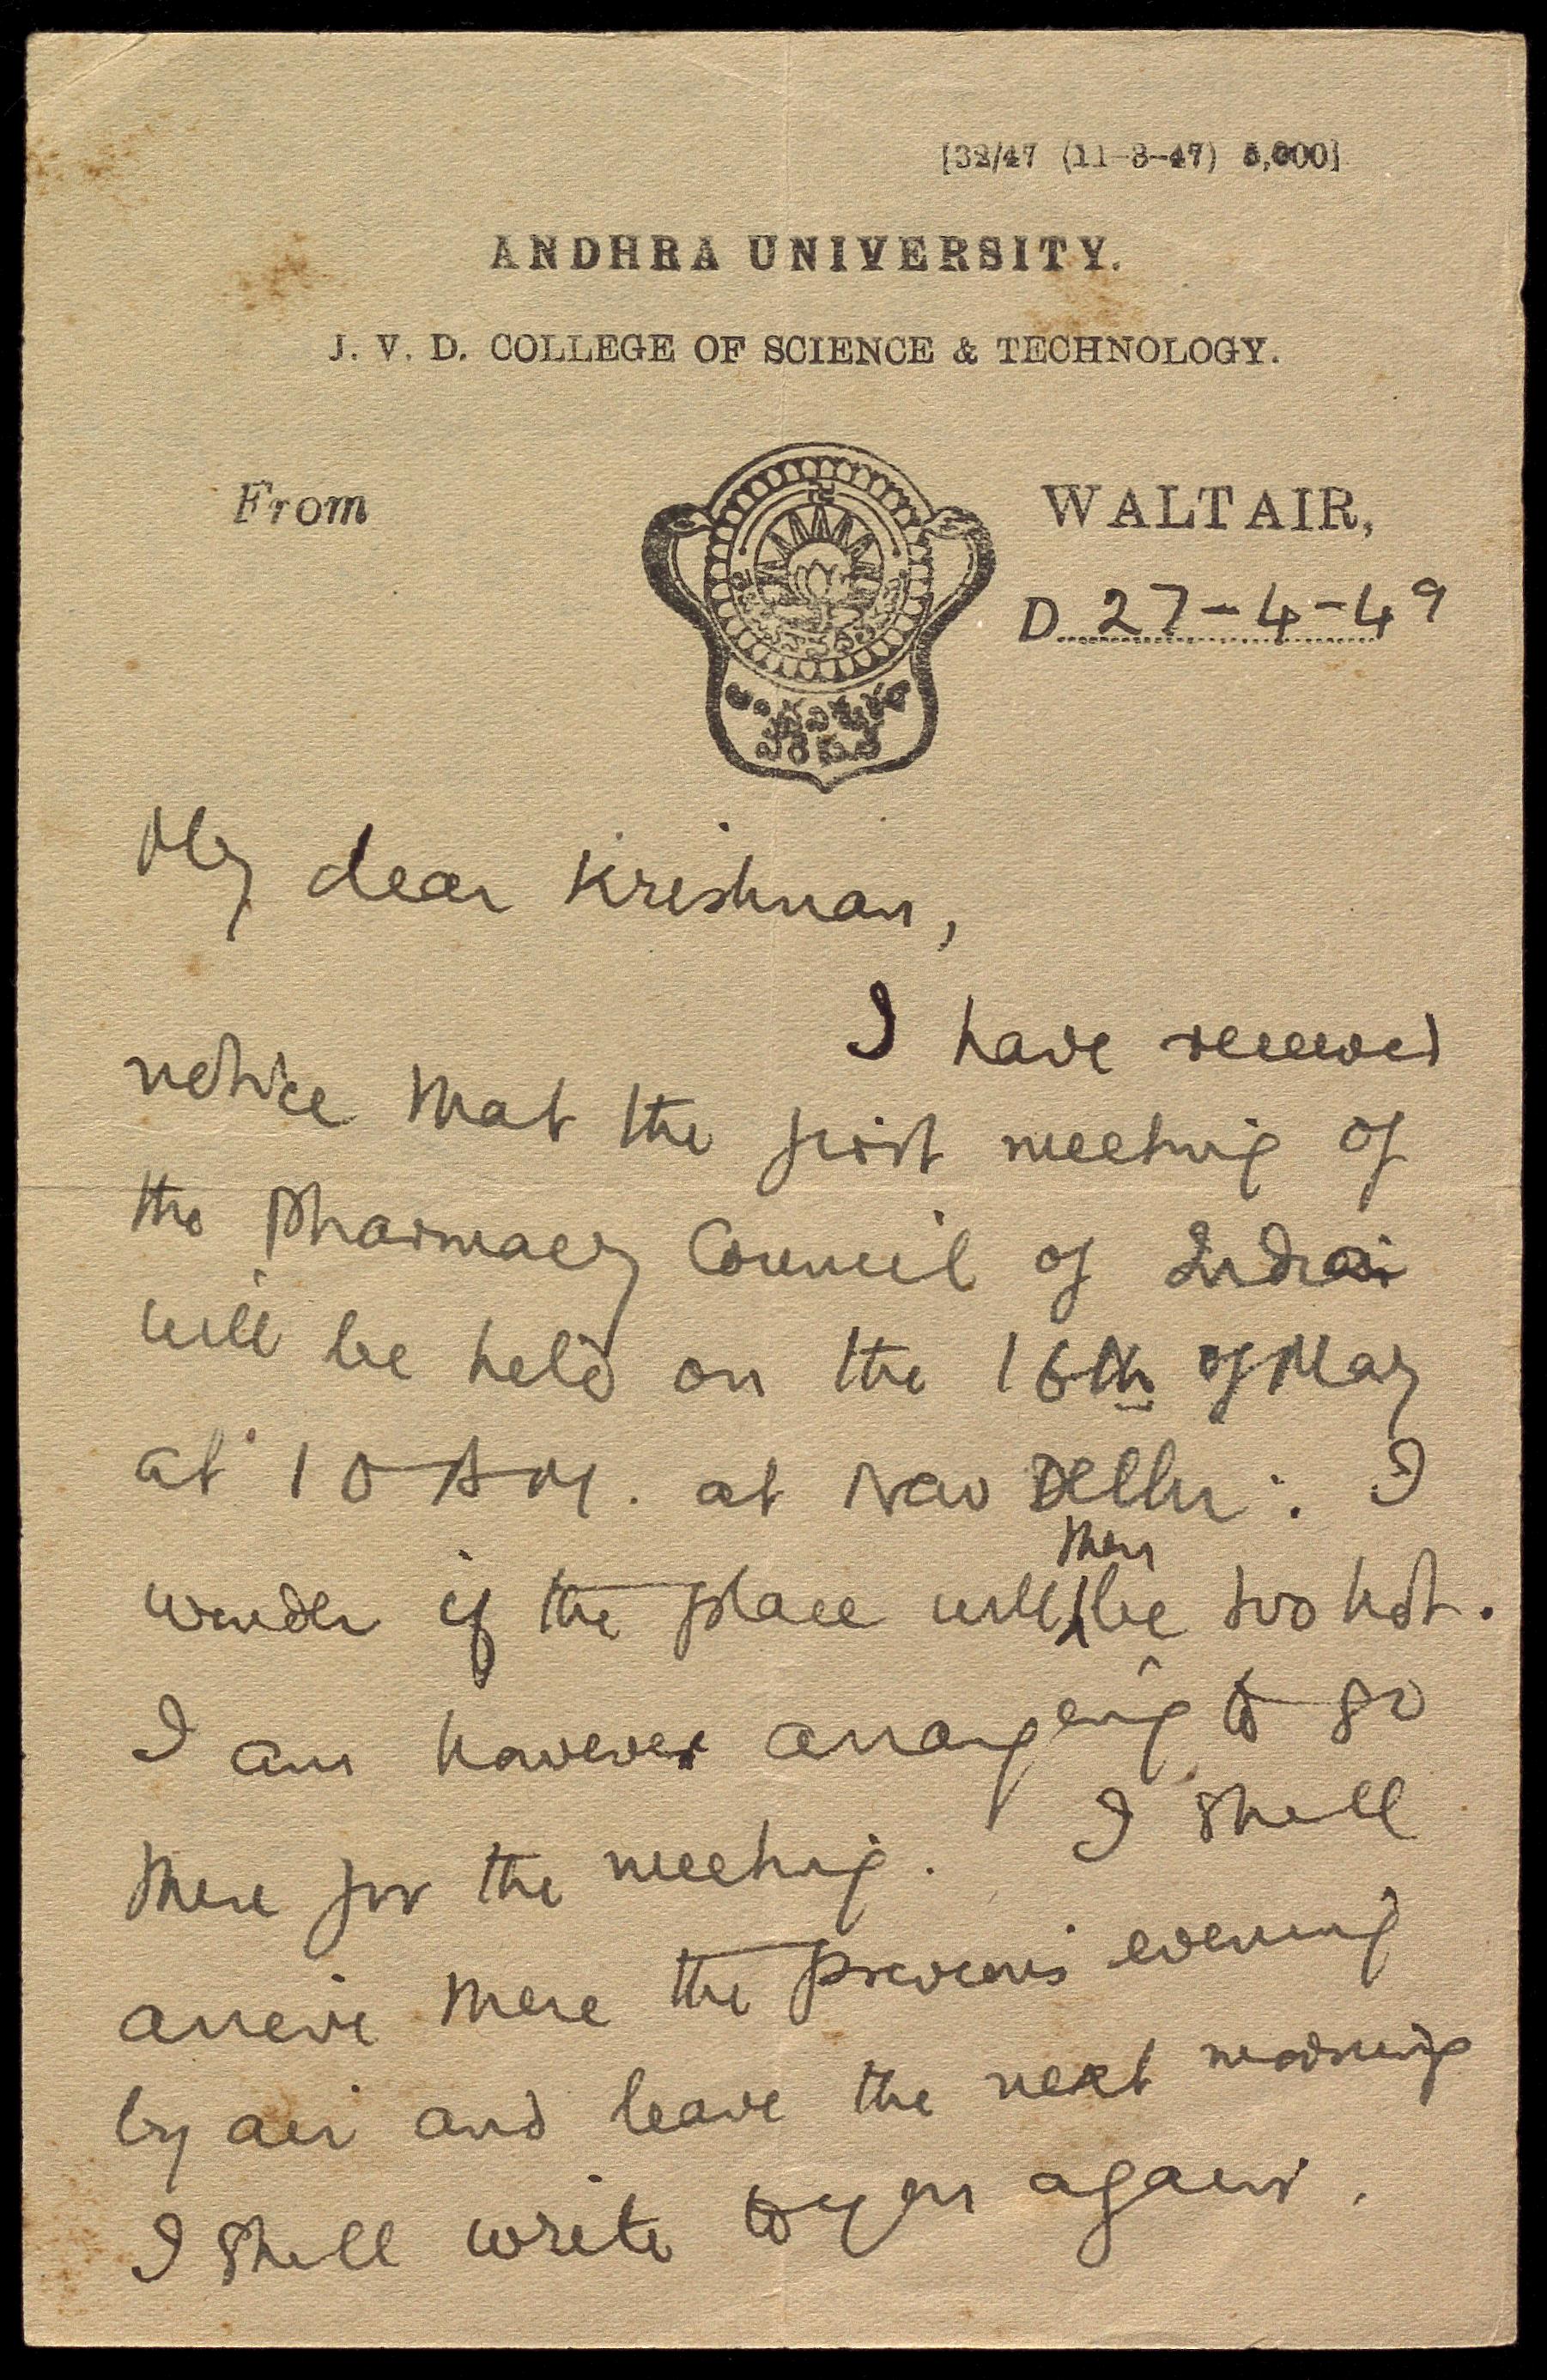 [32/47 (11-3-47) 5,000]
ANDHRA UNIVERSITY.
J. V. D. COLLEGE OF SCIENCE & TECHNOLOGY.
From
WALTAIR,
D 27-4-49
My dear Krishnan,
I have received
notice that the first meeting of
the Pharmacy Council of India
will be held on the 16th of May
at 10 A.M. at New Delhi. I
wonder if the place will then be too hot.
I am however arranging to go
there for the meeting. I shall
arrive there the previous evening
by air and leave the next morning
I shall write to you again.